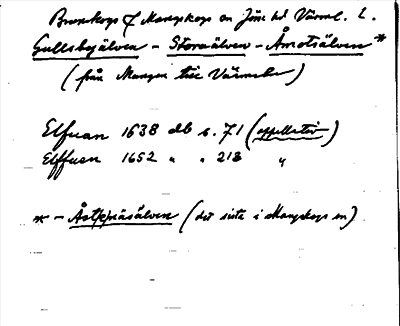 Brunskogs & Mangskogs sn Jösse hd Värml. l.
Gullsbyälven - Storaälven - Åmotsälven *
(från Mangen till Värmeln)
Elfuan 1638 db s. 71 (appellativ)
Elffuen 1652 " " 213 "
* - Åstenäsälven (det sista i Mangskogs sn)